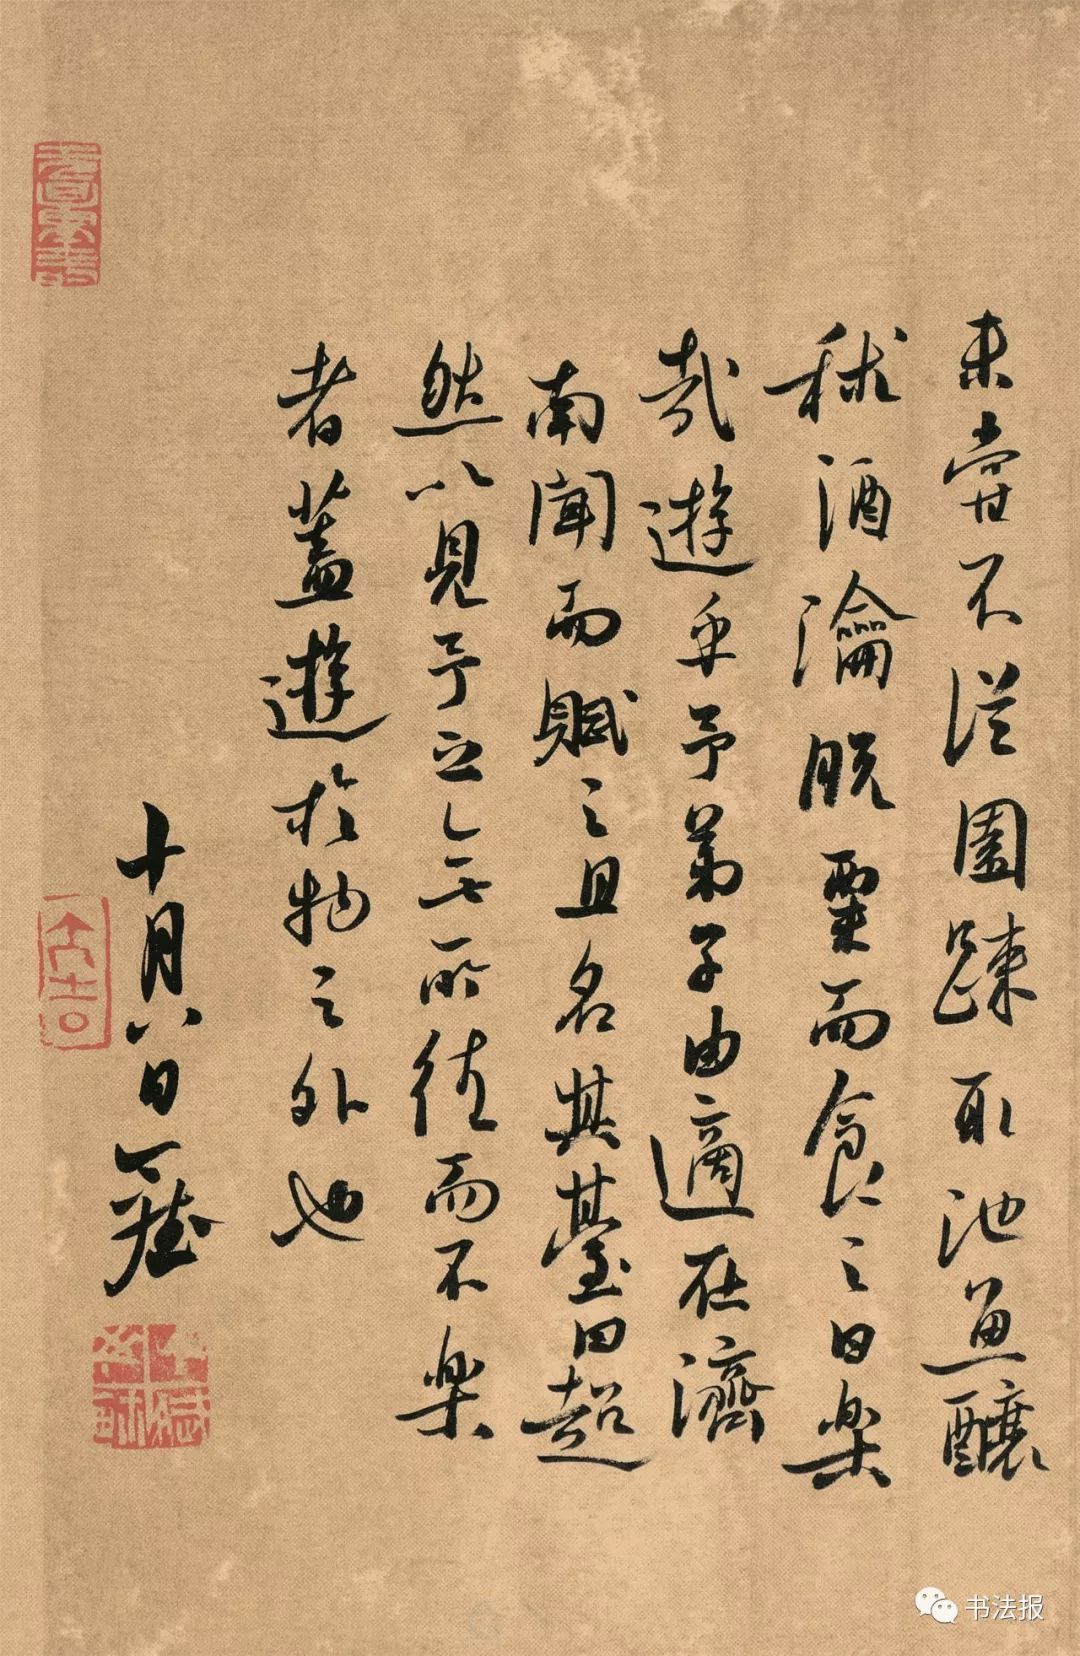 未嘗不從園踈取池魚釀
秫酒瀹脫粟而食之曰樂
哉遊乎予弟子由適在濟
南聞而賦之且名其臺曰超
然以見予之無所往而不樂
者蓋遊於物之外也
十月八日
书法报